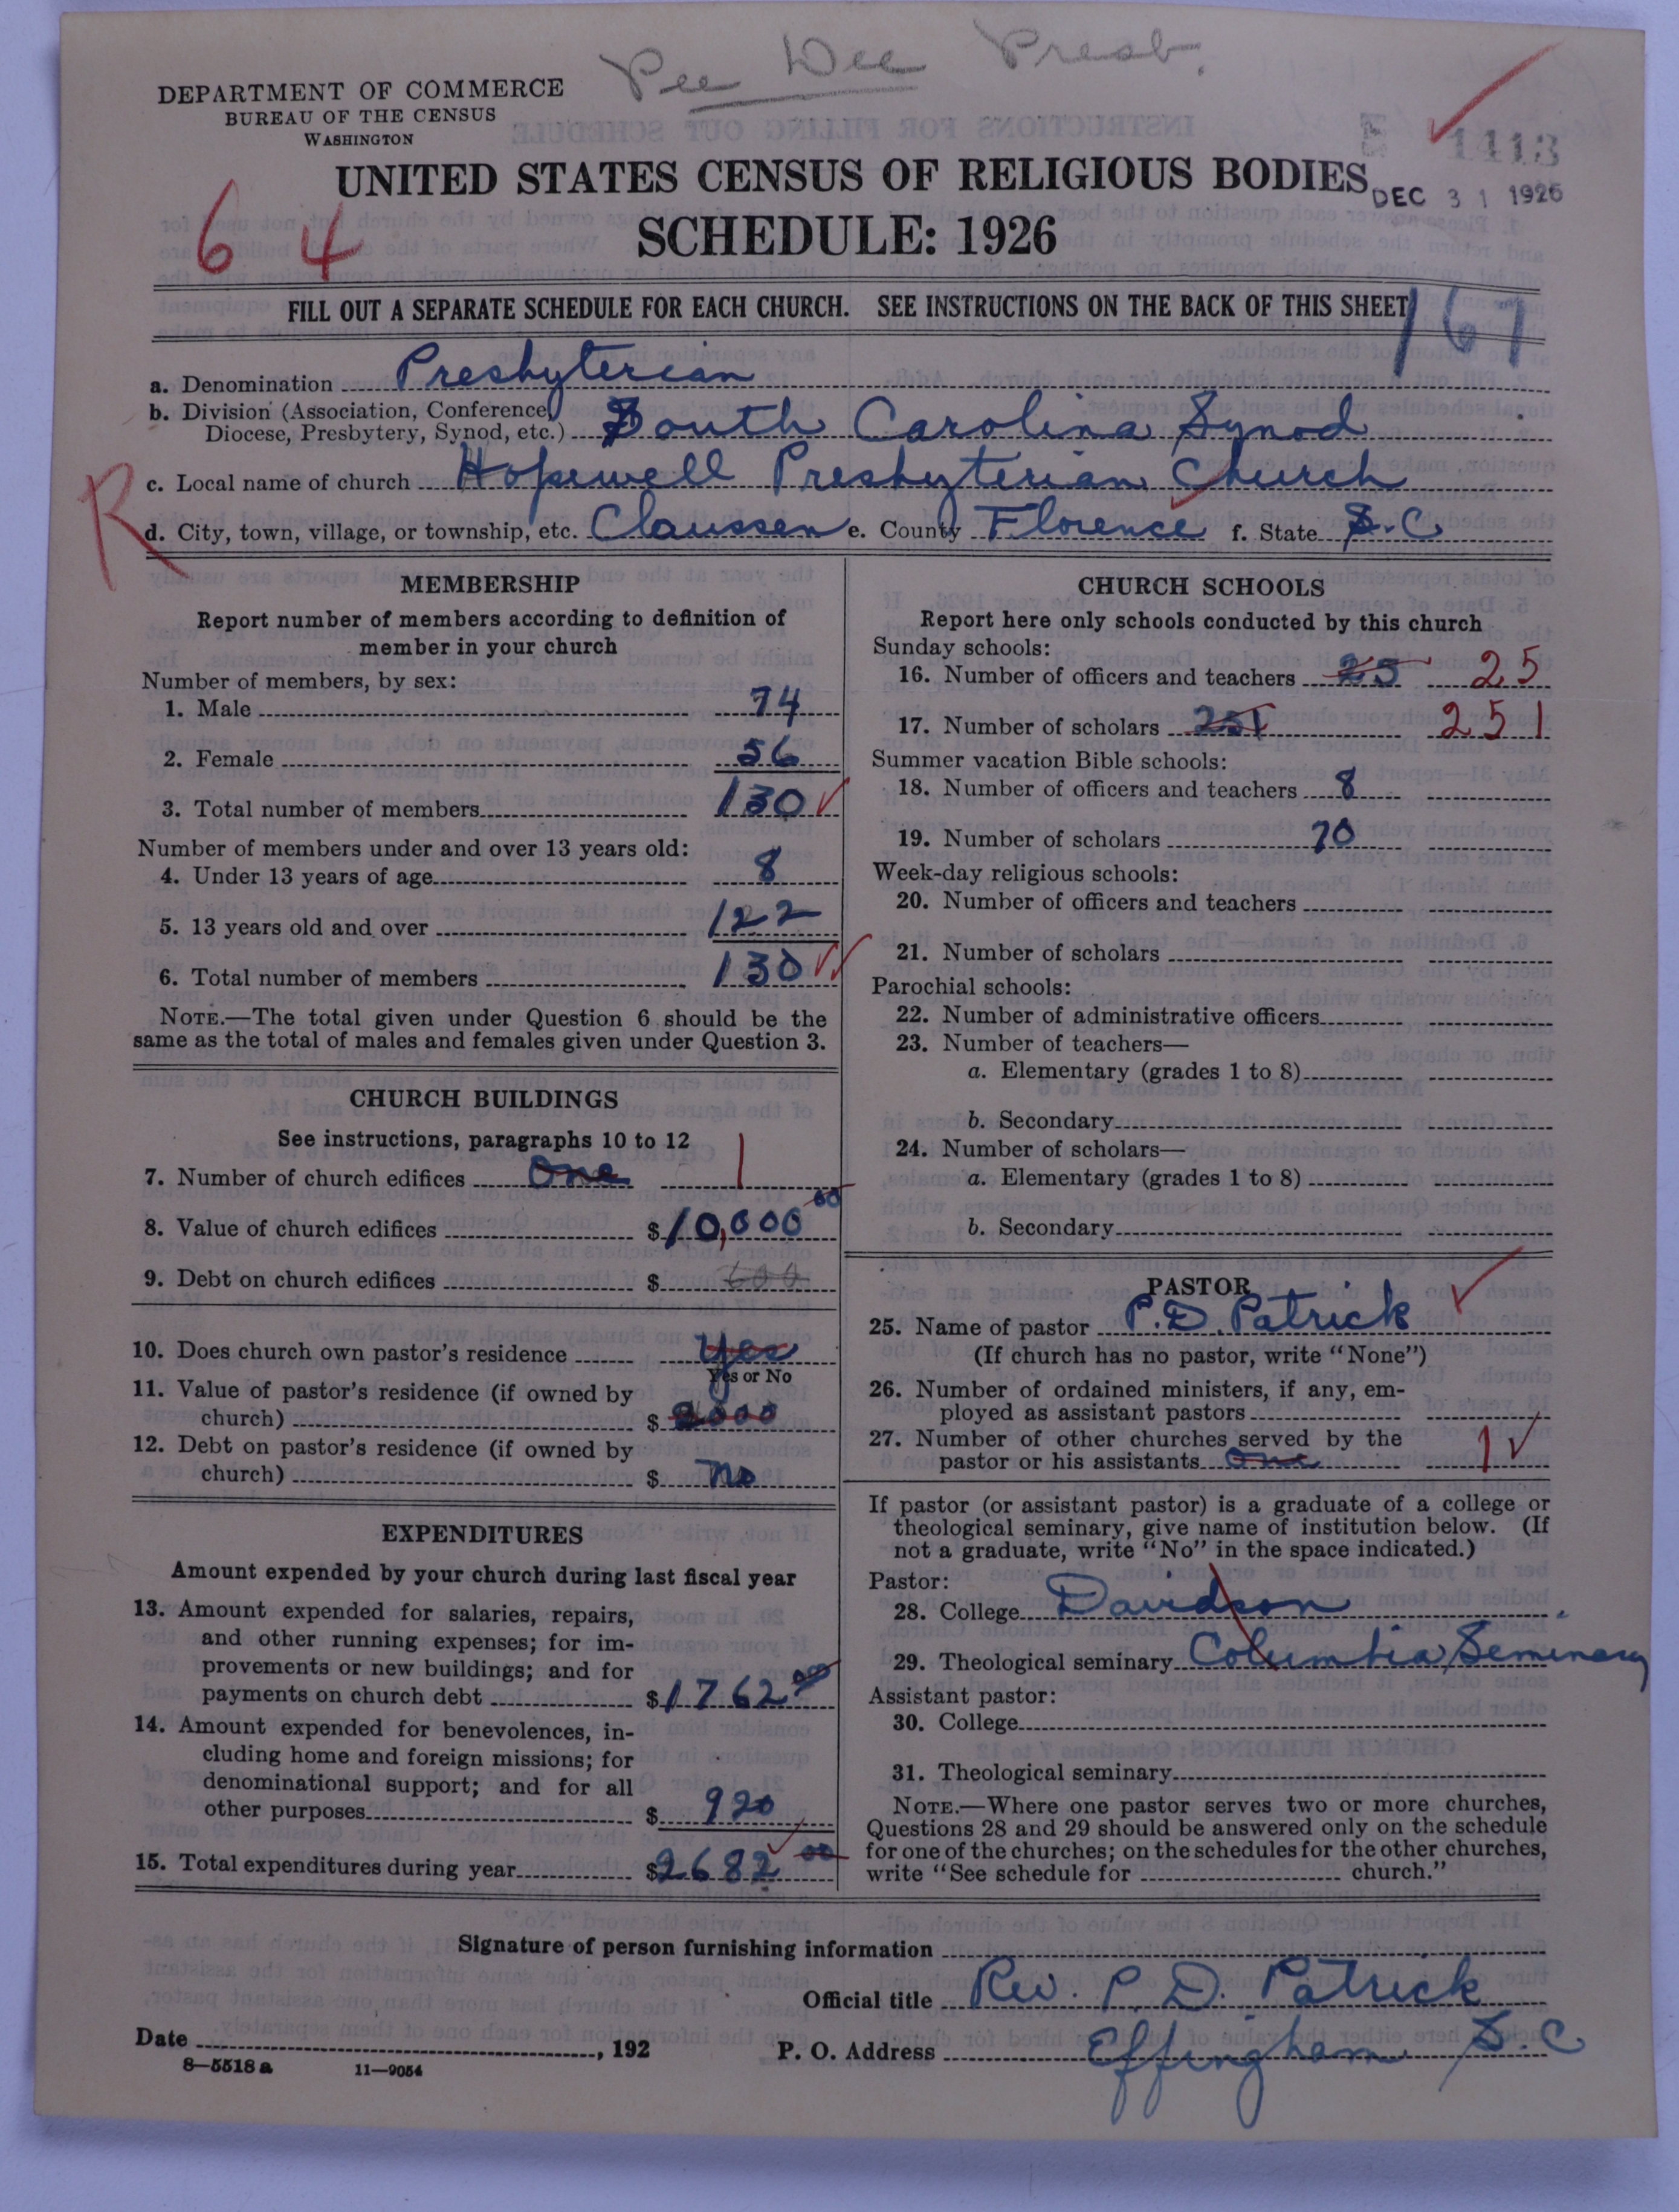 Pee Dee Presb.
DEPARTMENT OF COMMERCE
BUREAU OF THE CENSUS
WASHINGTON
1413
UNITED STATES CENSUS OF RELIGIOUS BODIES
DEC 31 1926
64
SCHEDULE: 1926
FILL OUT A SEPARATE SCHEDULE FOR EACH CHURCH. SEE INSTRUCTIONS ON THE BACK OF THIS SHEET
167
a. Denomination Presbyterian
b. Division (Association, Conference,
Diocese, Presbytery, Synod, etc.) South Carolina Synod
c. Local name of church Hopewell Presbyterian Church
R
d. City, town, village, or township, etc. Claussen e. County Florence f. State S.C
MEMBERSHIP
Report number of members according to definition of
member in your church
Number of members, by sex:
1. Male 74
2. Female 56
3. Total number of members 130
Number of members under and over 13 years old:
4. Under 13 years of age 8
5. 13 years old and over 122
6. Total number of members 130
NOTE.—The total given under Question 6 should be the
same as the total of males and females given under Question 3.
CHURCH BUILDINGS
See instructions, paragraphs 10 to 12
7. Number of church edifices One 1
8. Value of church edifices $10,000 00
9. Debt on church edifices $ 600
10. Does church own pastor's residence Yes
Yes or No
11. Value of pastor's residence (if owned by
church) $ 2000
12. Debt on pastor's residence (if owned by
church) $ no
EXPENDITURES
Amount expended by your church during last fiscal year
13. Amount expended for salaries, repairs,
and other running expenses; for im-
provements or new buildings; and for
payments on church debt $1762 00
14. Amount expended for benevolences, in-
cluding home and foreign missions; for
denominational support; and for all
other purposes $ 920
15. Total expenditures during year $2682 00
CHURCH SCHOOLS
Report here only schools conducted by this church
Sunday schools:
16. Number of officers and teachers 25 25
17. Number of scholars 251 251
Summer vacation Bible schools:
18. Number of officers and teachers 8
19. Number of scholars 70
Week-day religious schools:
20. Number of officers and teachers
21. Number of scholars
Parochial schools:
22. Number of administrative officers
23. Number of teachers—
a. Elementary (grades 1 to 8)
b. Secondary
24. Number of scholars—
a. Elementary (grades 1 to 8)
b. Secondary
PASTOR
25. Name of pastor P.D. Patrick
(If church has no pastor, write "None")
26. Number of ordained ministers, if any, em-
ployed as assistant pastors
27. Number of other churches served by the
pastor or his assistants One 1
If pastor (or assistant pastor) is a graduate of a college or
theological seminary, give name of institution below. (If
not a graduate, write "No" in the space indicated.)
Pastor:
28. College Davidson
29. Theological seminary Columbia Seminary
Assistant pastor:
30. College
31. Theological seminary
NOTE.—Where one pastor serves two or more churches,
Questions 28 and 29 should be answered only on the schedule
for one of the churches; on the schedules for the other churches,
write "See schedule for church."
Signature of person furnishing information
Official title Rev. P. D. Patrick
Date , 192 P. O. Address Effingham S.C
8—5518a 11—9054